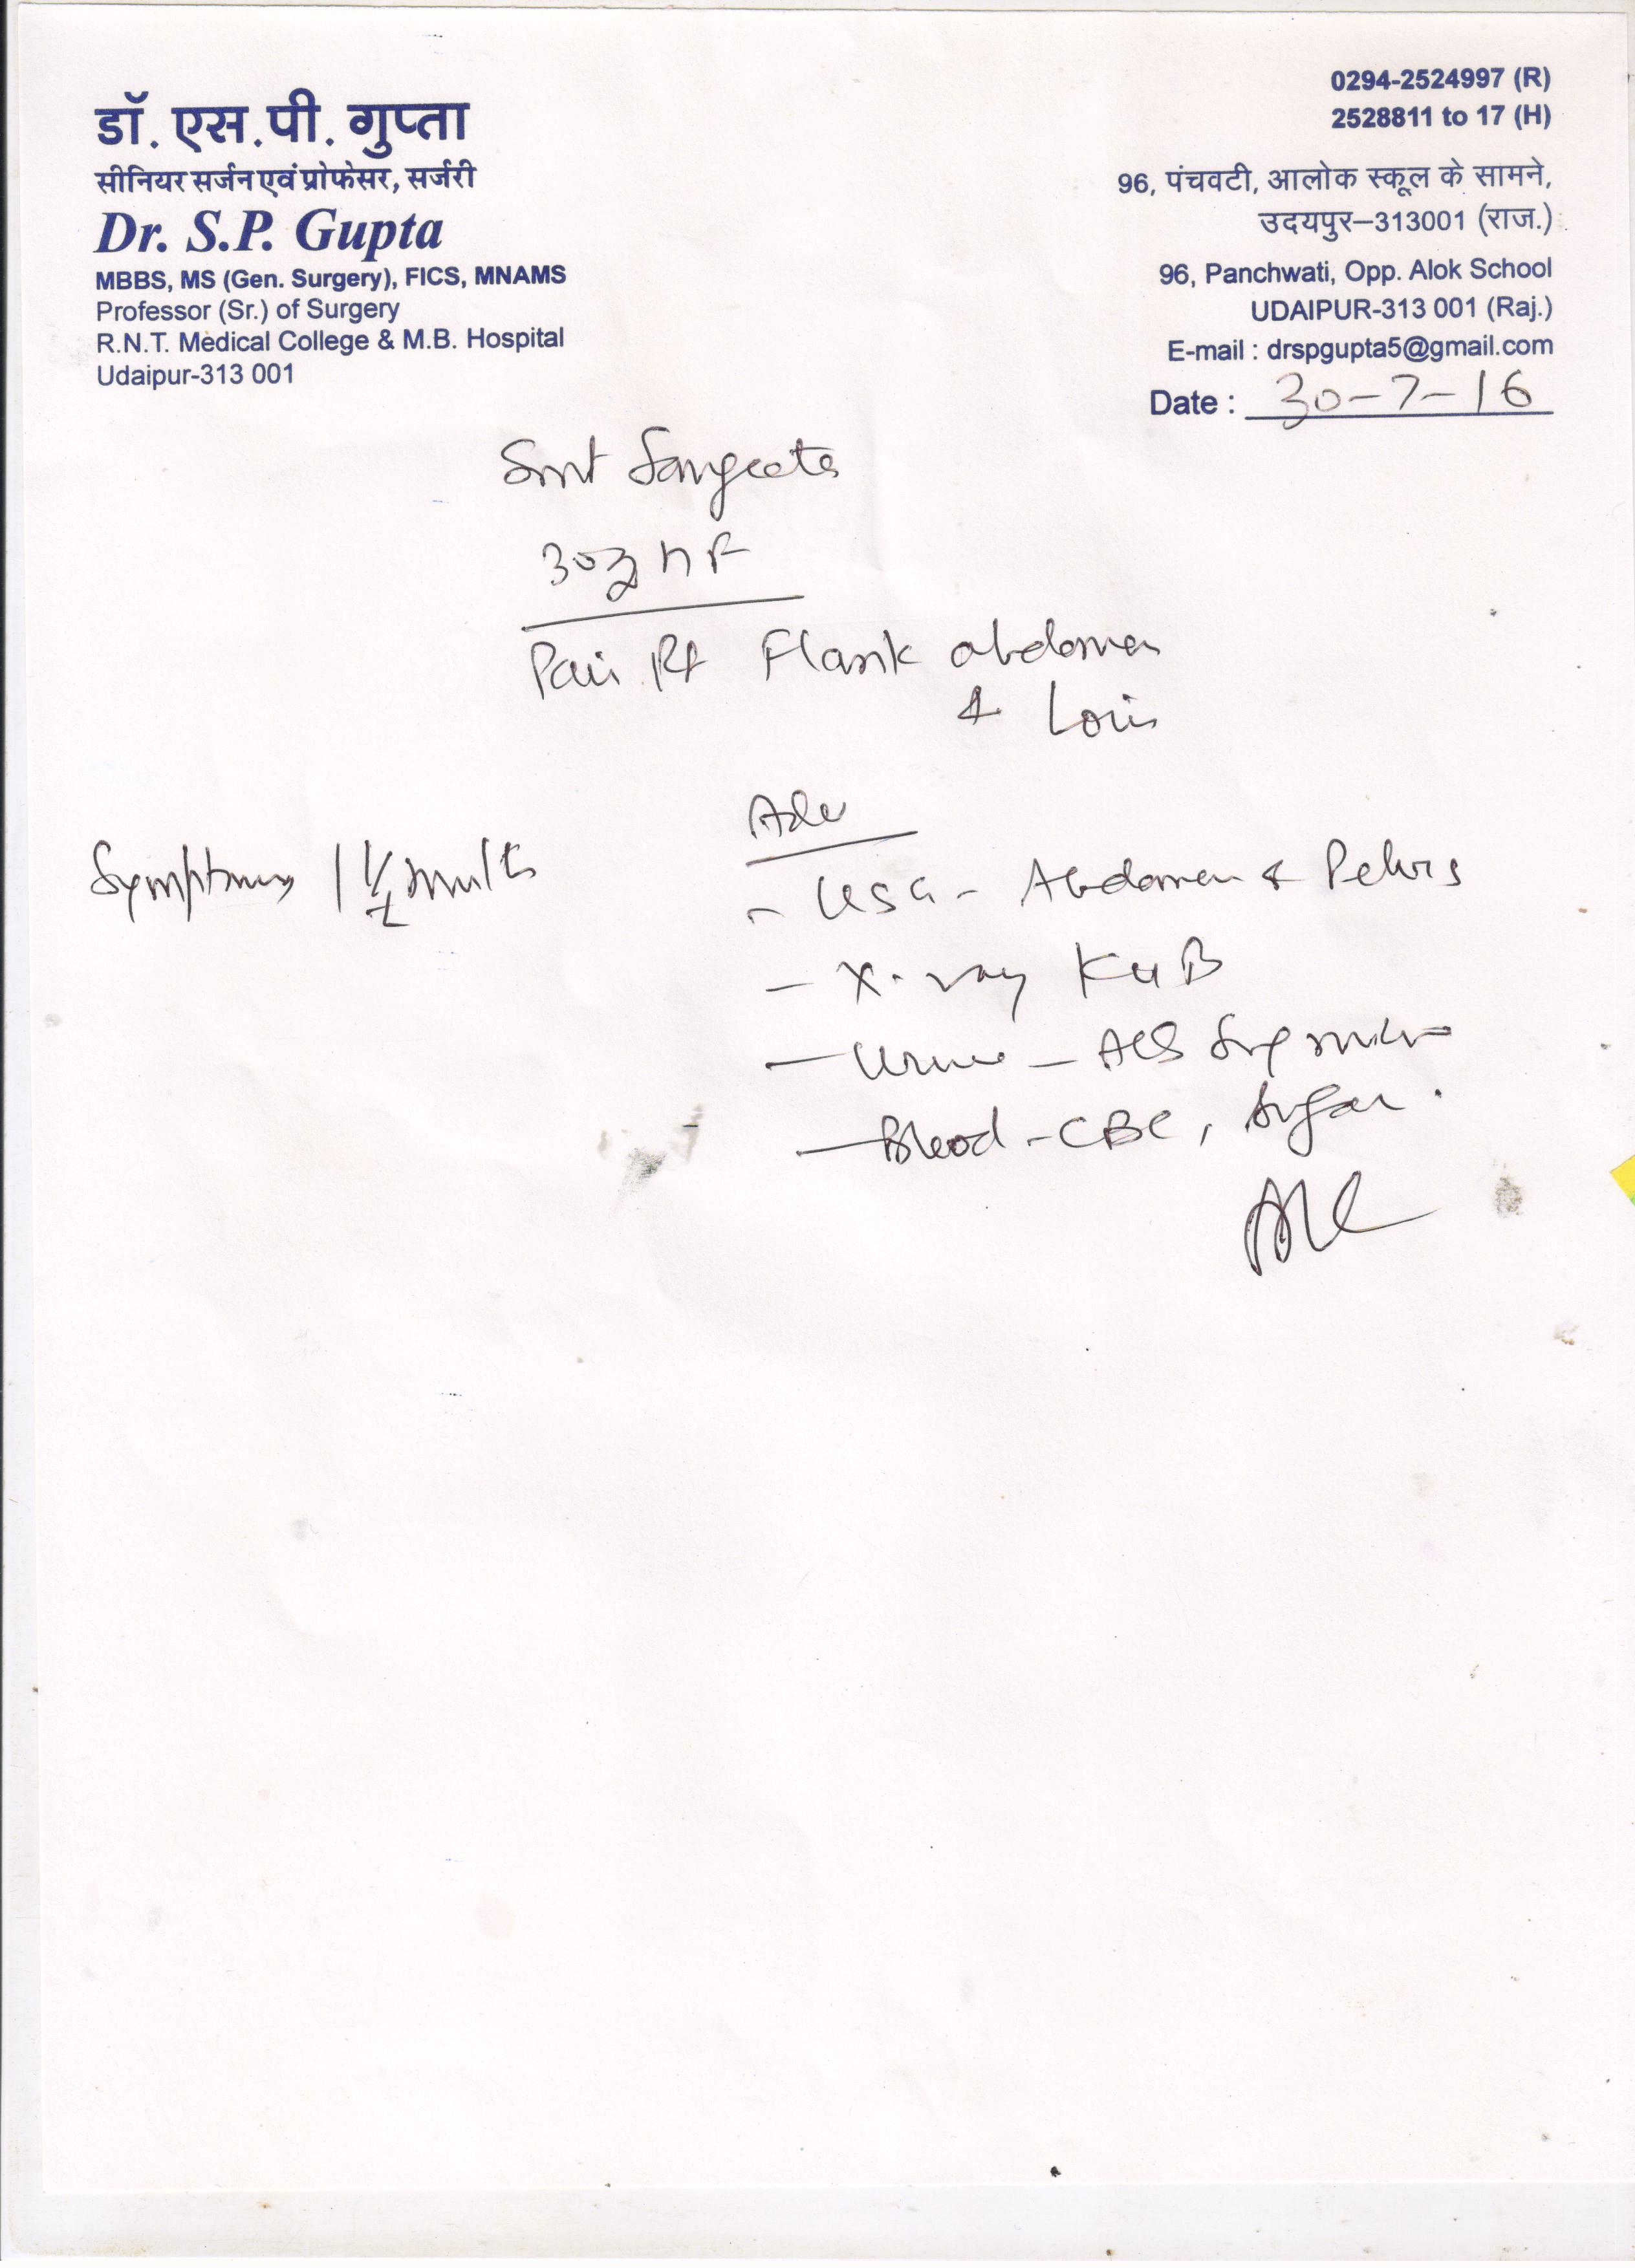 डॉ. एस.पी. गुप्ता
सीनियर सर्जन एवं प्रोफेसर, सर्जरी
Dr. S.P. Gupta
MBBS, MS (Gen. Surgery), FICS, MNAMS
Professor (Sr.) of Surgery
R.N.T. Medical College & M.B. Hospital
Udaipur-313 001
0294-2524997 (R)
2528811 to 17 (H)
96, पंचवटी, आलोक स्कूल के सामने,
उदयपुर–313001 (राज.)
96, Panchwati, Opp. Alok School
UDAIPUR-313 001 (Raj.)
E-mail : drspgupta5@gmail.com
Date : 30-7-16
Smt Sangeeta
30y F
Pain Rt Flank abdomen
& Loin
Symptoms 1 1/2 months
Adv
- USG - Abdomen & Pelvis
- X-ray KUB
- Urine - Alb Sug micro
- Blood - CBC, Sugar.